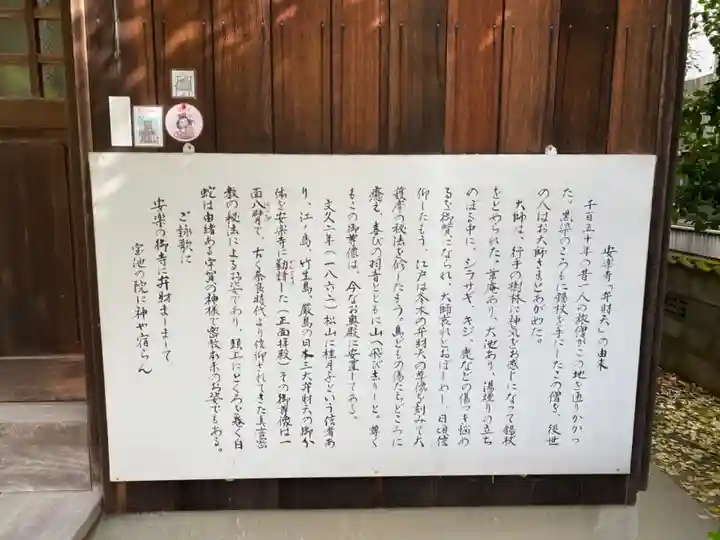 安楽寺「弁財天」の由来
千百五十年の昔一人の旅僧がこの地を通りかかっ
た。黒染のころもに錫杖を手にしたこの僧を、後世
の人はお大師さまとあがめた。
大師は、行手の樹林に神気をお感じになって錫杖
をとめられた。草庵あり、大池あり、湯煙りの立ち
のぼる中に、シラサギ、キジ、鹿などの傷つき悩め
るを御覧になられ、大師哀れとおぼしめし、日頃信
仰したもう、江戸は冬木の弁財天の尊像を刻み、大
護摩の秘法を修したもう。鳥どもの傷たちどころに
癒え、喜びの羽音とともに山へ飛び去りしと。尊く
もこの御尊像は、今なお奥殿に安置してある。
文久二年(一八六二)松山に桂月子という信者あ
り、江ノ島、竹生島、厳島の日本三大弁財天の御分
体を安楽寺に勧請した(正面拝殿)その御尊像は一
面八臂で、古く奈良時代より信仰されてきた真言密
教の秘法によるお姿であり、頭上にとぐろを巻く白
蛇は由緒ある宇賀の神様で密教本来のお姿でもある。
ご詠歌に
安楽の御寺に弁財ましまして
宝池の院に神や宿らん